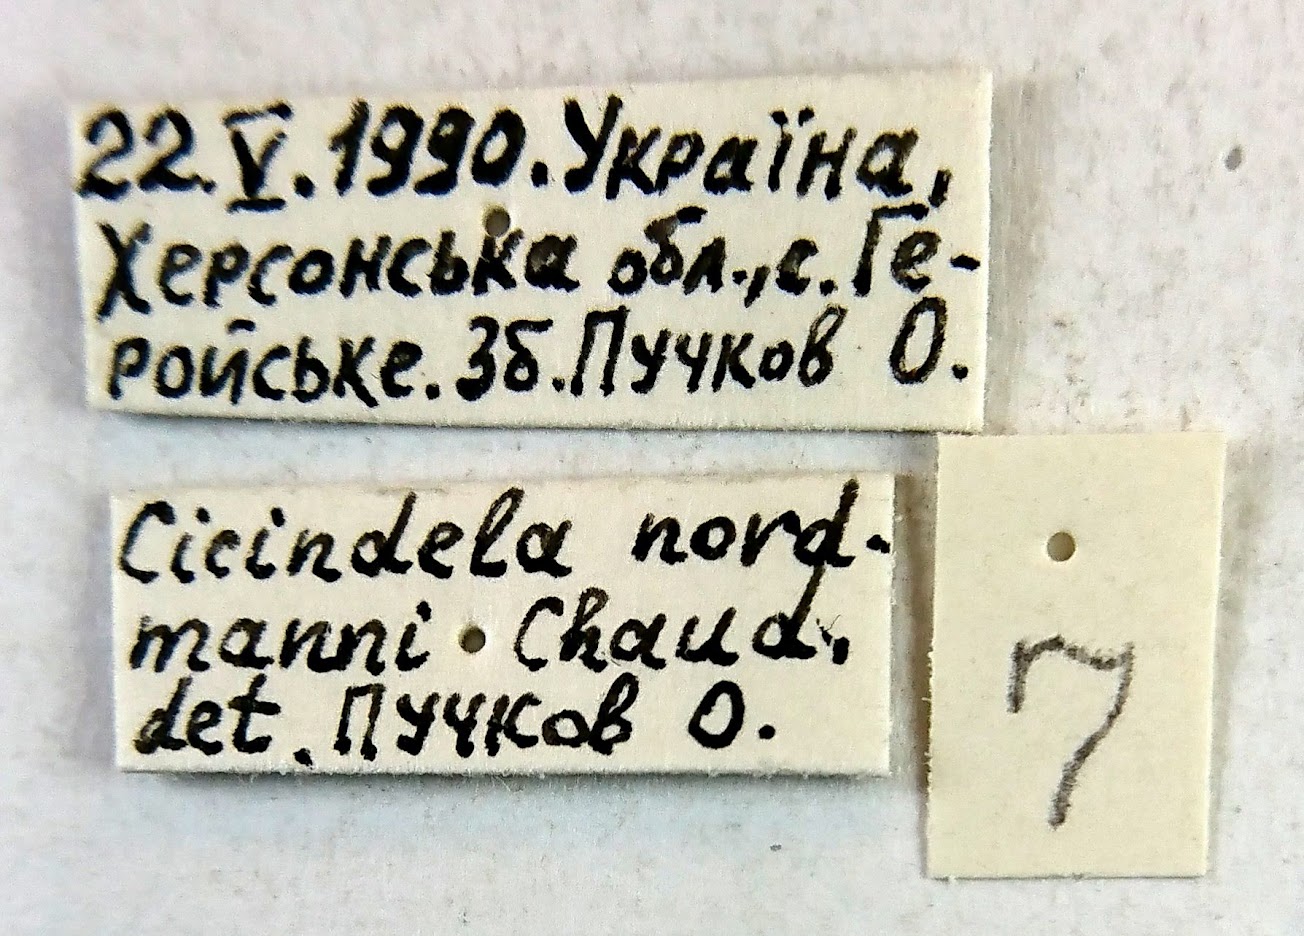 22.V.1990. Україна,
Херсонська обл., с. Ге-
ройське. Зб. Пучков О.
Cicindela nord-
manni Chaud.
det. Пучков О.
7